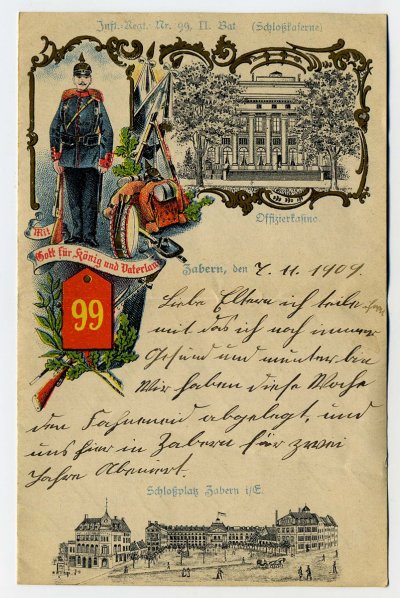 Inft.-Regt. Nr. 99. II. Bat (Schloßkaserne)
Offizierkasino
Mit
Gott für König und Vaterland
99
Zabern, den 7. 11. 1909.
Liebe Eltern ich teile
mit das ich noch immer
Gesund und munter bin
Wir haben diese Woche
den Fahneneid abgelegt, und
uns hier in Zabern für zwei
Jahre
Schloßplatz Zabern i/E.